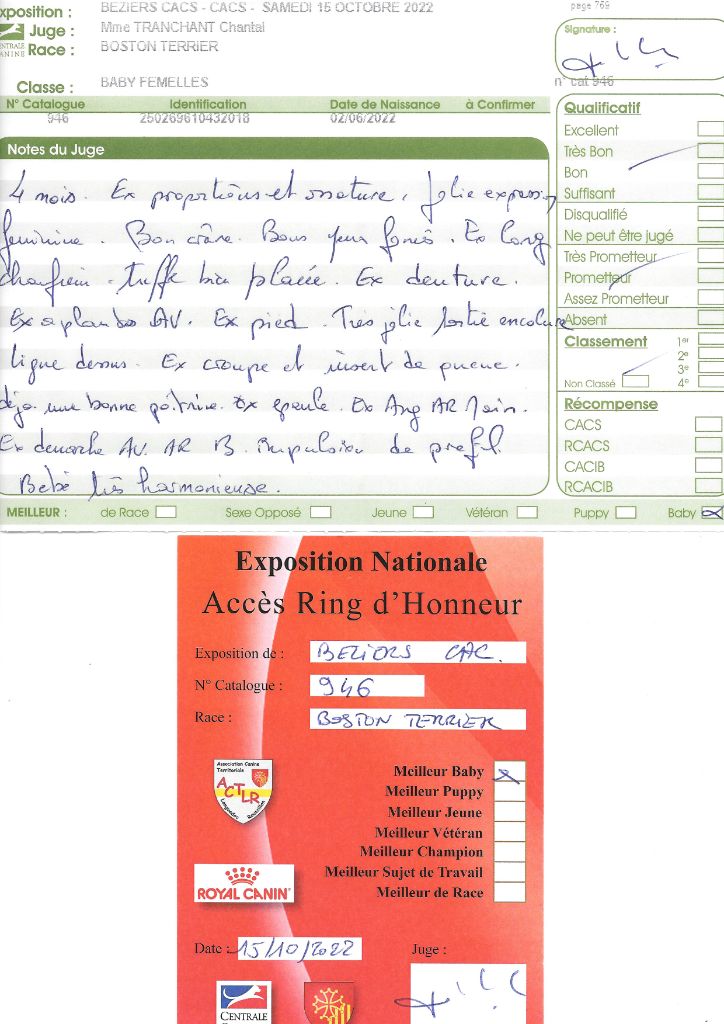 xposition : BEZIERS CACS - CACS - SAMEDI 15 OCTOBRE 2022
page 769
Juge : Mme TRANCHANT Chantal
CENTRALE CANINE Race : BOSTON TERRIER
Signature :
Classe : BABY FEMELLES
n° cat 946
N° Catalogue Identification Date de Naissance à Confirmer
946 250269610432018 02/06/2022
Notes du Juge
4 mois. Ex proportions et ossature, Jolie expression
féminine. Bon crâne. Bons yeux foncés. Ex long
chanfrein - truffe bien placée. Ex denture.
Ex aplombs AV. Ex pied. Très jolie sortie encolure
ligne dessus. Ex croupe et insert de queue.
déjà une bonne poitrine. Ex épaule. Ex Ang AR
Ex démarche AV. AR B. impulsion de profil.
Bébé très harmonieuse.
Qualificatif
Excellent
Très Bon
Bon
Suffisant
Disqualifié
Ne peut être jugé
Très Prometteur
Prometteur
Assez Prometteur
Absent
Classement 1er
2e
3e
Non Classé 4e
Récompense
CACS
RCACS
CACIB
RCACIB
MEILLEUR : de Race Sexe Opposé Jeune Vétéran Puppy Baby
Exposition Nationale
Accès Ring d'Honneur
Exposition de : BEZIERS CAC.
N° Catalogue : 946
Race : BOSTON TERRIER
Association Canine
Territoriale
ACTLR
Languedoc Roussillon
Meilleur Baby
Meilleur Puppy
Meilleur Jeune
Meilleur Vétéran
Meilleur Champion
Meilleur Sujet de Travail
Meilleur de Race
ROYAL CANIN
Date : 15/10/2022 Juge :
CENTRALE